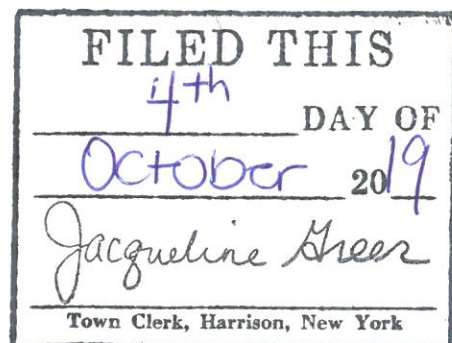 FILED THIS
4th
DAY OF
October 2019
Jacqueline Greer
Town Clerk, Harrison, New York